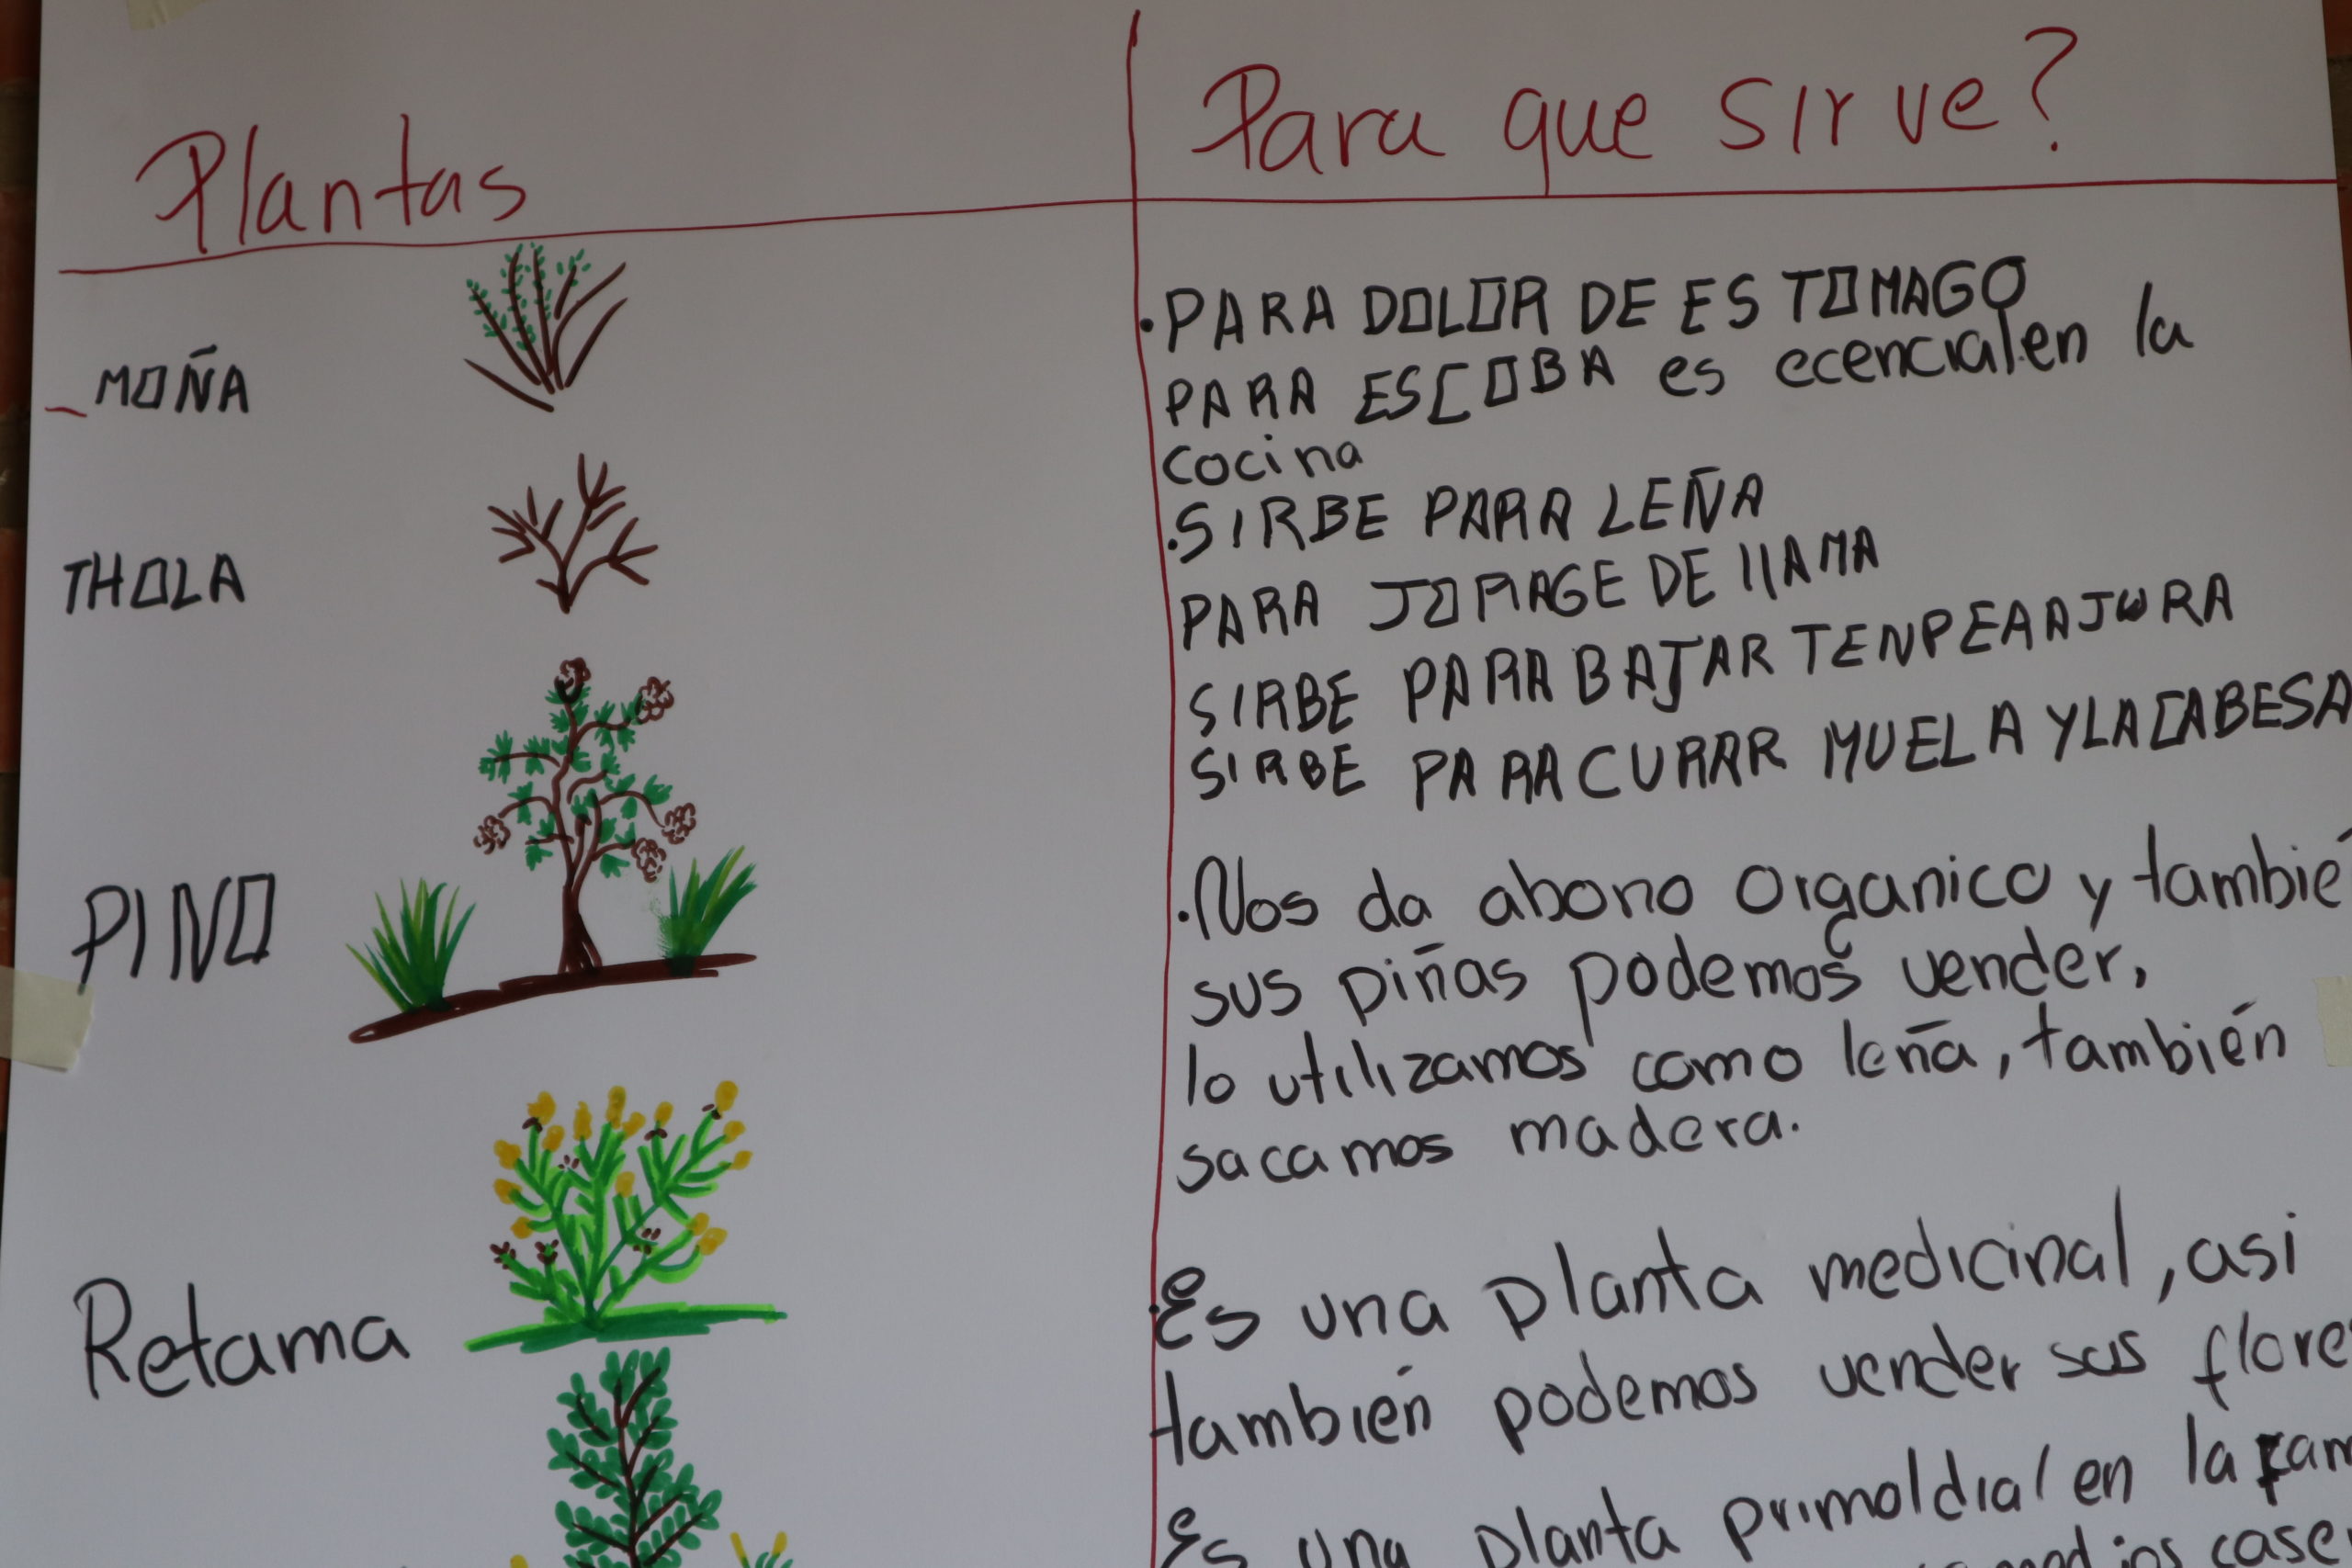 Plantas
Para que sirve?
MOÑA
.PARA DOLOR DE ESTOMAGO
PARA ESCOBA es ecencial en la
cocina
THOLA
.SIRBE PARA LEÑA
PARA JORAGE DE llAMA
SIRBE PARA BAJAR TENPEAAJURA
SIRBE PARA CURAR MUELA Y LA CABESA
PINO
.Nos da abono organico y tambié
sus piñas podemos vender,
lo utilizamos como leña, también
sacamos madera.
Retama
.Es una planta medicinal, asi
también podemos vender sus flores
Es una planta primoldial en la
case